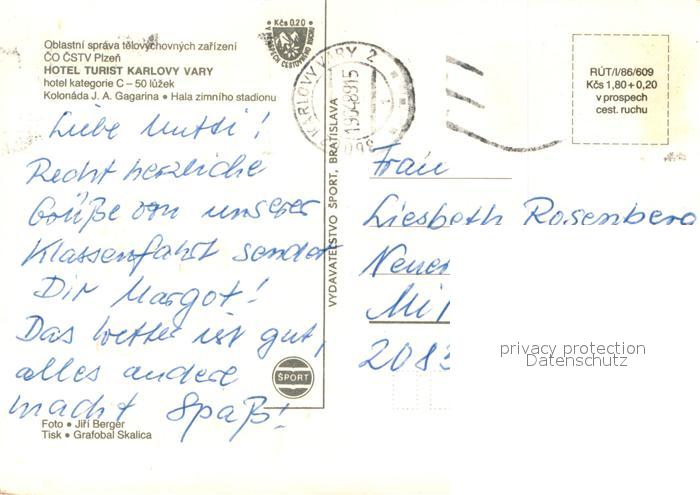 Kčs 0.20
Oblastní správa tělovýchovných zařízení
ČO ČSTV Plzeň
HOTEL TURIST KARLOVY VARY
hotel kategorie C – 50 lůžek
Kolonáda J. A. Gagarina • Hala zimního stadionu
Liebe Mutti!
Recht herzliche
Grüße von unserer
Klassenfahrt sendet
Dir Margot!
Das Wetter ist gut,
alles andere
macht Spaß!
Foto • Jiří Berger
Tisk • Grafobal Skalica
ŠPORT
VYDAVATEĽSTVO ŠPORT, BRATISLAVA
KARLOVY VARY 2
RÚT/I/86/609
Kčs 1,80 + 0,20
v prospech
cest. ruchu
Frau
Liesbeth Rosenberg
privacy protection
Datenschutz